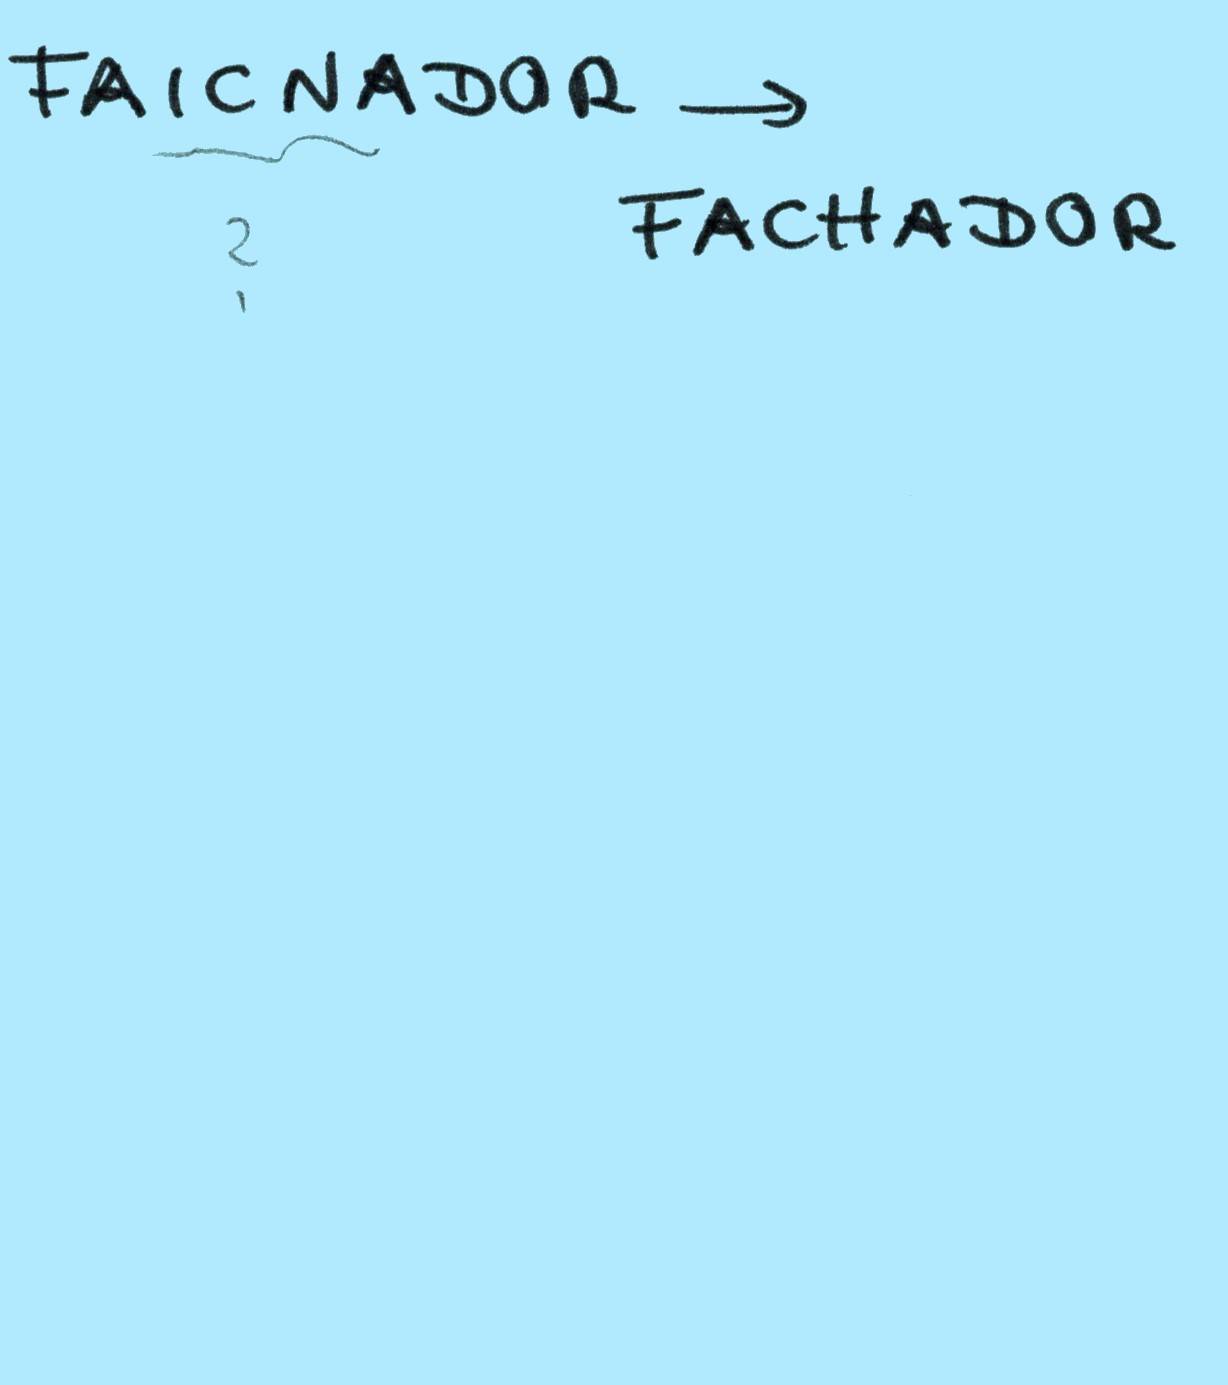 FAICNADOR →
FACHADOR
?